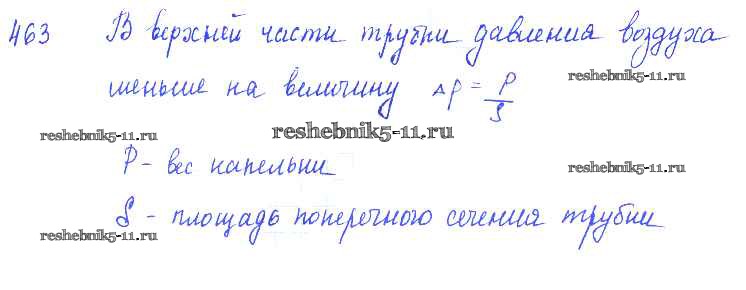 463 В верхней части трубки давления воздуха
reshebnik5-11.ru
меньше на величину Δp = P/S
reshebnik5-11.ru reshebnik5-11.ru
P - вес капельки
reshebnik5-11.ru
S - площадь поперечного сечения трубки
reshebnik5-11.ru